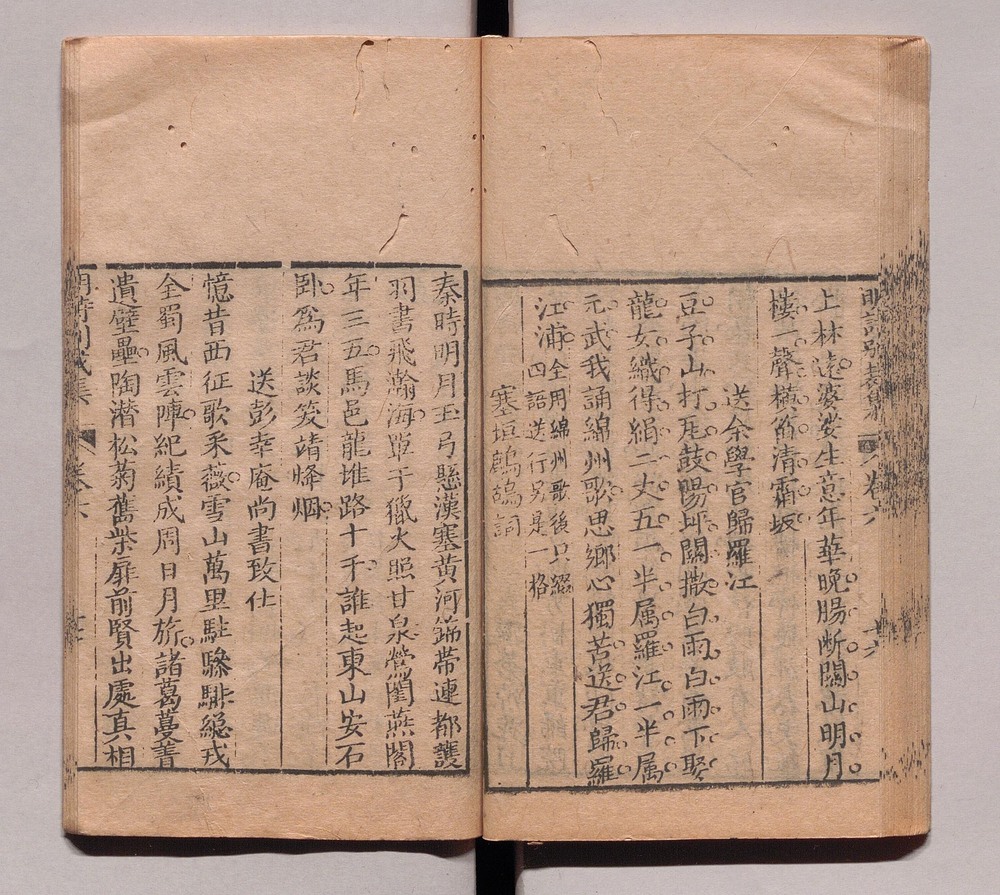 明詩別裁集 卷六 十六
上林遠婆娑生意年華晚腸斷關山明月
樓一聲橫笛清霜坂
送余學官歸羅江
豆子山打瓦鼓陽坪關撒白雨白雨下娶
龍女織得絹二丈五一半屬羅江一半屬
元武我誦綿州歌思鄉心獨苦送君歸羅
江浦全用綿州歌後只綴
四語送行另是一格
塞垣鷓鴣詞
秦時明月玉弓懸漢塞黃河錦帶連都護
羽書飛瀚海單于獵火照甘泉鶯閨燕閣
年三五馬邑龍堆路十千誰起東山安石
臥爲君談笑靖烽烟
送彭幸庵尚書致仕
憶昔西征歌采薇雪山萬里駐驂騑總戎
全蜀風雲陣紀績成周日月旂諸葛蔓菁
遺壁壘陶潛松菊舊柴扉前賢出處真相
明詩別裁集 卷六